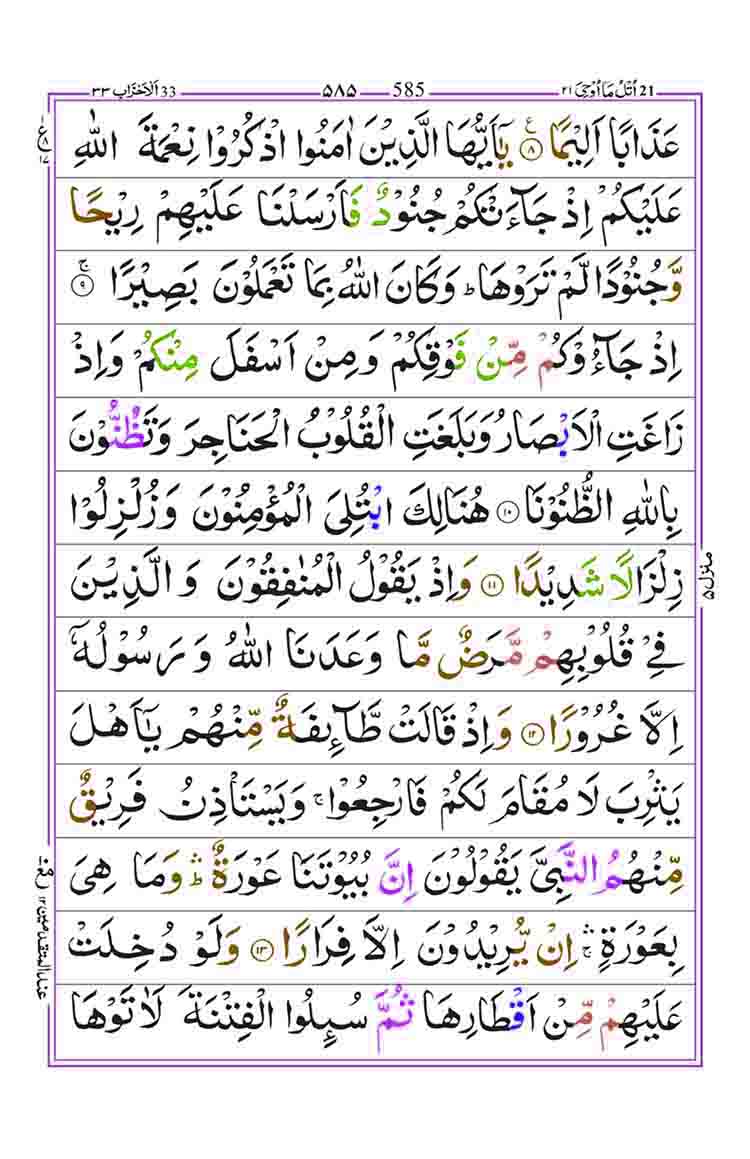 21 اُتْلُ مَا اُوْحِیَ ٢١ 585 ۵۸۵ 33 اَلْاَحْزَاب ٣٣
عَذَابًا اَلِیْمًا ۧ۝۸ یٰۤاَیُّهَا الَّذِیْنَ اٰمَنُوا اذْكُرُوْا نِعْمَةَ اللّٰهِ
عَلَیْكُمْ اِذْ جَآءَتْكُمْ جُنُوْدٌ فَاَرْسَلْنَا عَلَیْهِمْ رِیْحًا
وَّجُنُوْدًا لَّمْ تَرَوْهَا ؕ وَكَانَ اللّٰهُ بِمَا تَعْمَلُوْنَ بَصِیْرًا ۚ۝۹
اِذْ جَآءُوْكُمْ مِّنْ فَوْقِكُمْ وَمِنْ اَسْفَلَ مِنْكُمْ وَاِذْ
زَاغَتِ الْاَبْصَارُ وَبَلَغَتِ الْقُلُوْبُ الْحَنَاجِرَ وَتَظُنُّوْنَ
بِاللّٰهِ الظُّنُوْنَا ۝۱۰ هُنَالِكَ ابْتُلِیَ الْمُؤْمِنُوْنَ وَزُلْزِلُوْا
زِلْزَالًا شَدِیْدًا ۝۱۱ وَاِذْ یَقُوْلُ الْمُنٰفِقُوْنَ وَالَّذِیْنَ
فِیْ قُلُوْبِهِمْ مَّرَضٌ مَّا وَعَدَنَا اللّٰهُ وَرَسُوْلُهٗۤ
اِلَّا غُرُوْرًا ۝۱۲ وَاِذْ قَالَتْ طَّآىِٕفَةٌ مِّنْهُمْ یٰۤاَهْلَ
یَثْرِبَ لَا مُقَامَ لَكُمْ فَارْجِعُوْا ۚ وَیَسْتَاْذِنُ فَرِیْقٌ
مِّنْهُمُ النَّبِیَّ یَقُوْلُوْنَ اِنَّ بُیُوْتَنَا عَوْرَةٌ ۛؕ وَمَا هِیَ
بِعَوْرَةٍ ۛۚ اِنْ یُّرِیْدُوْنَ اِلَّا فِرَارًا ۝۱۳ وَلَوْ دُخِلَتْ
عَلَیْهِمْ مِّنْ اَقْطَارِهَا ثُمَّ سُىِٕلُوا الْفِتْنَةَ لَاٰتَوْهَا
ع ٨ ١٧
منزل ۵
مع ١٢ عند المتقدمین